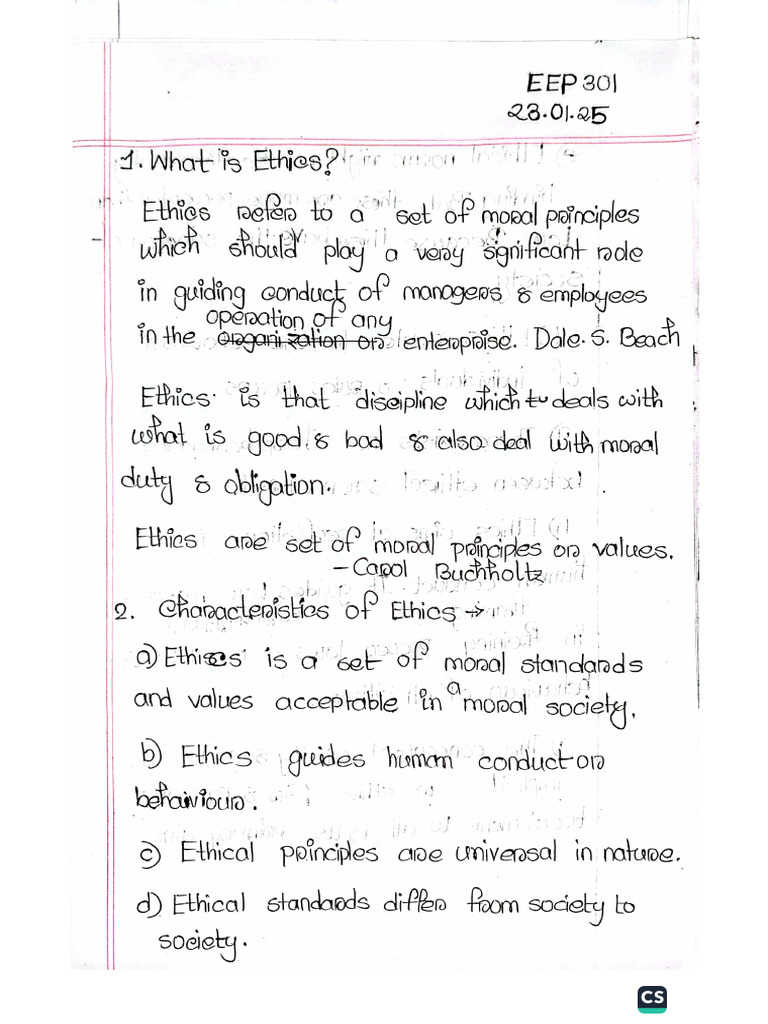 EEP 301
23.01.25
1. What is Ethics?
Ethics refer to a set of moral principles
which should play a very significant role
in guiding conduct of managers & employees
operation of any
in the organization or enterprise. Dale. S. Beach
Ethics is that discipline which to deals with
what is good & bad & also deal with moral
duty & obligation.
Ethics are set of moral principles or values.
- Carol Buchholtz
2. Characteristics of Ethics →
a) Ethics is a set of moral standards
and values acceptable in a moral society.
b) Ethics guides human conduct or
behaiviour.
c) Ethical principles are universal in nature.
d) Ethical standards differ from society to
society.
CS